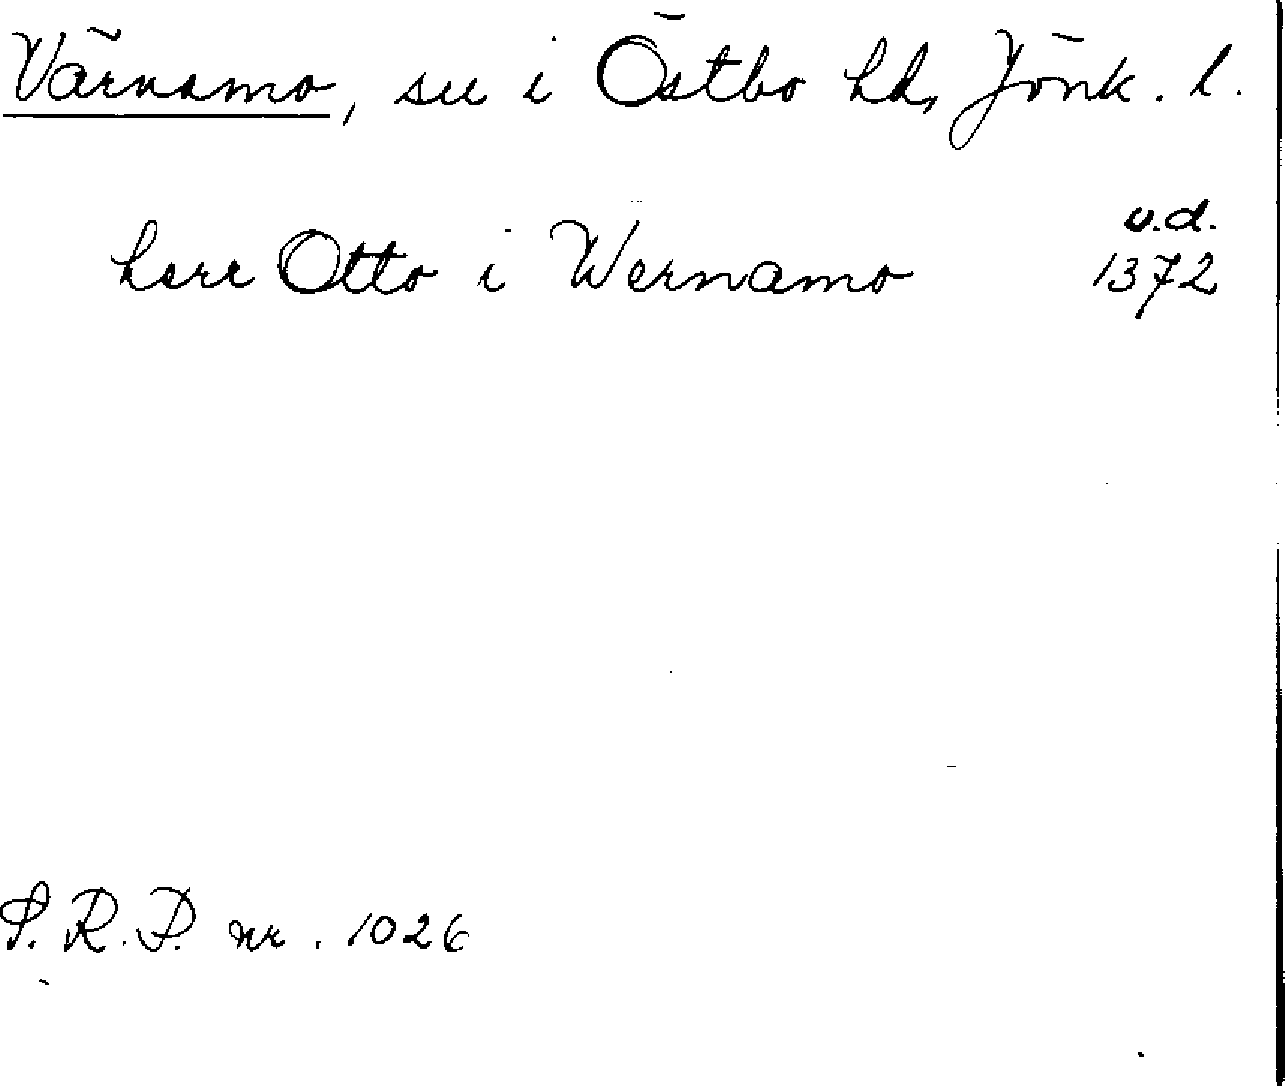 Värnamo, sn i Östbo hd, Jönk. l.
herr Otto i Wernamo
u.d.
1372
S.R.P. nr. 1026